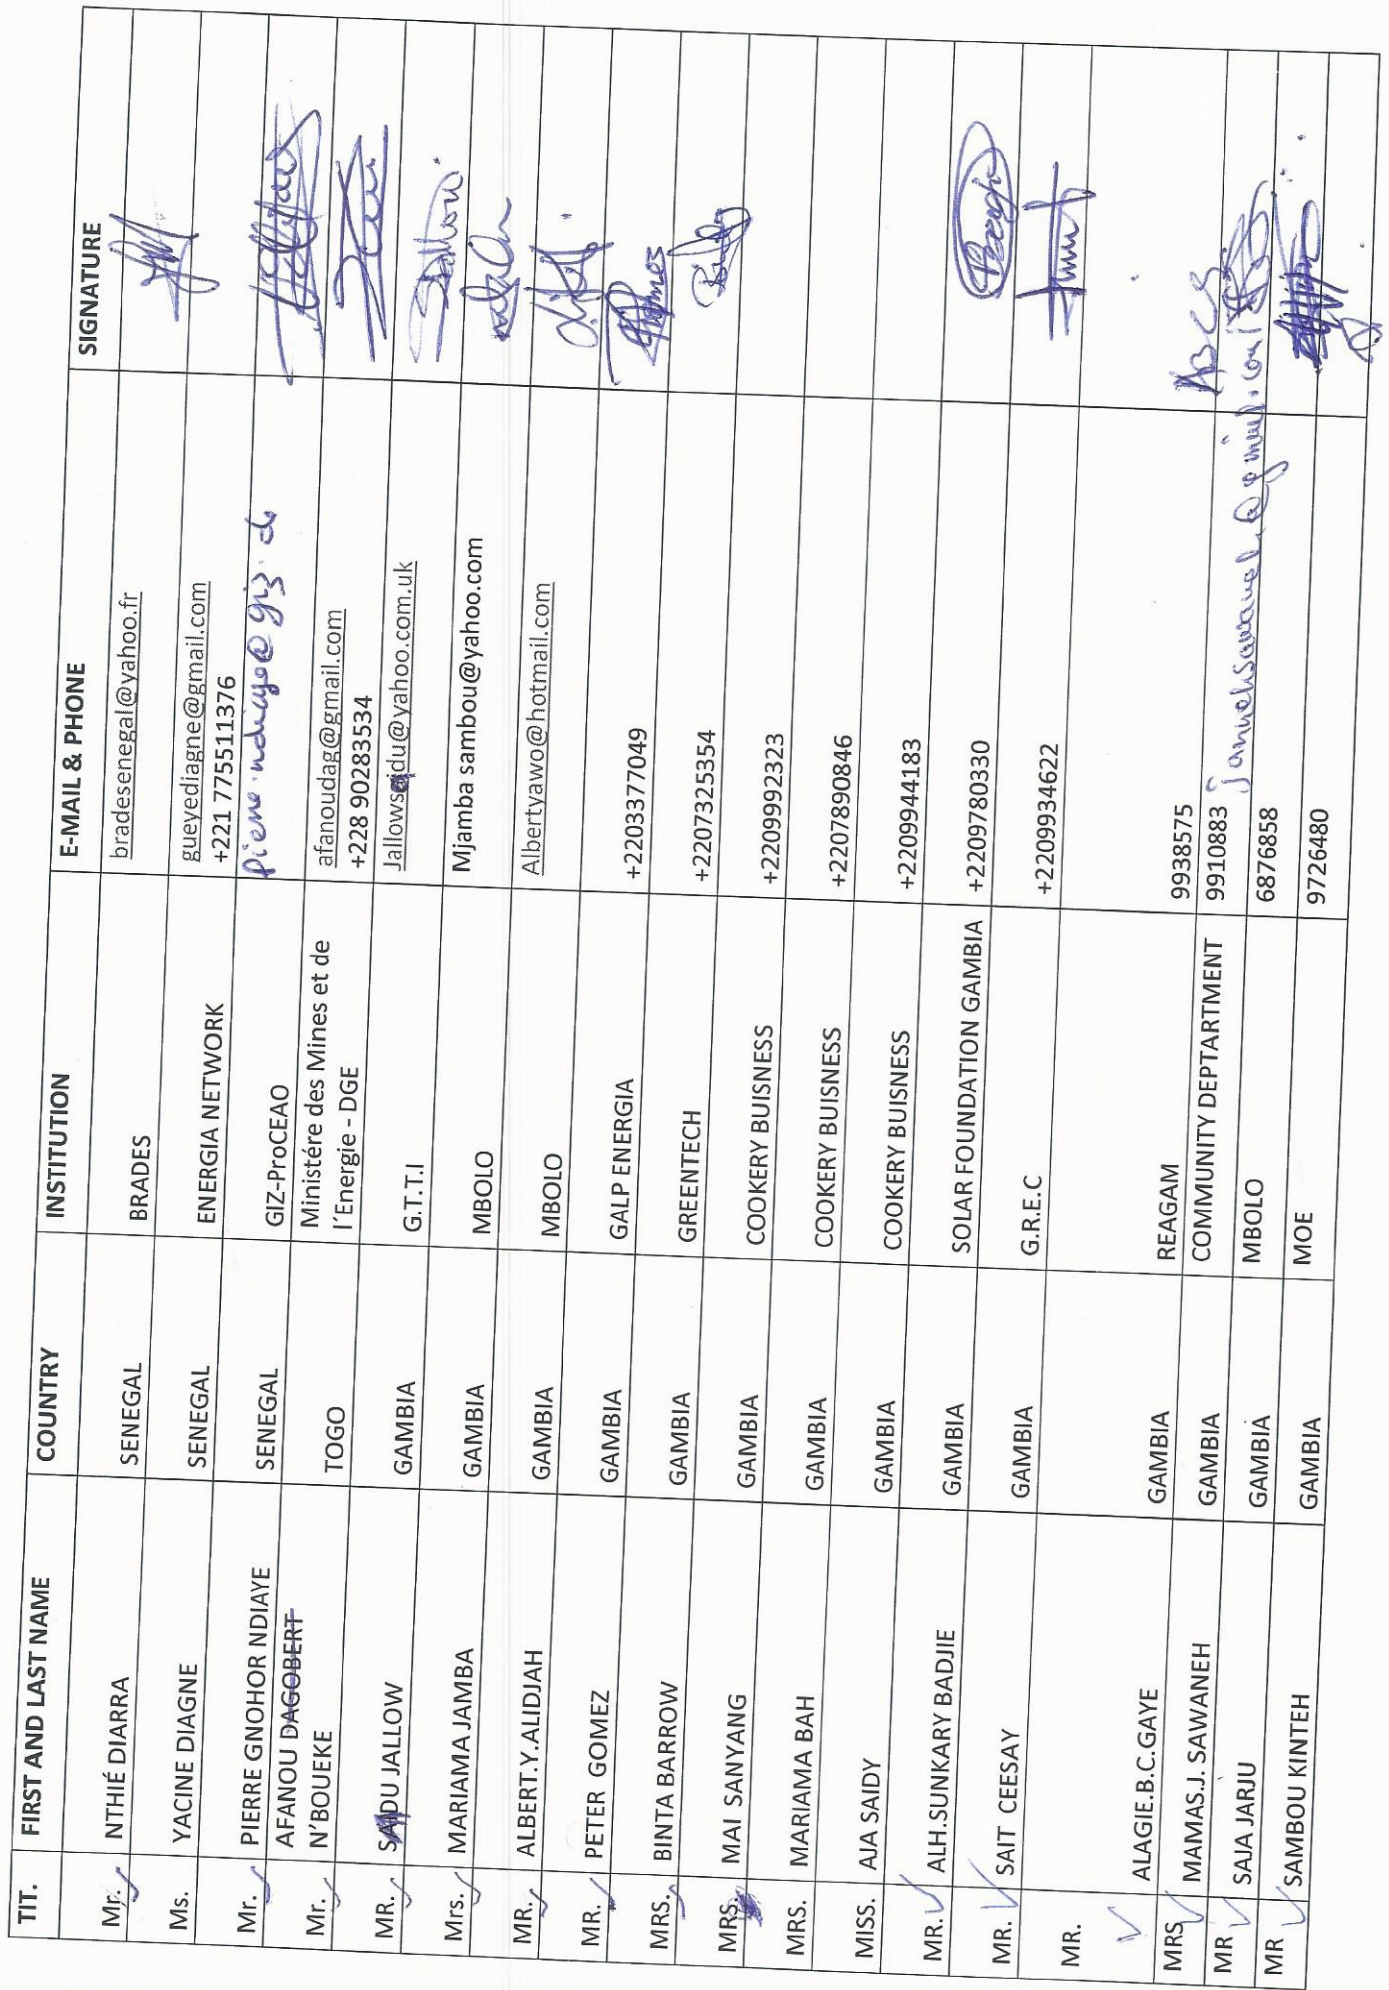 TIT. FIRST AND LAST NAME COUNTRY INSTITUTION E-MAIL & PHONE SIGNATURE
Mr. NTHIÉ DIARRA SENEGAL BRADES bradesenegal@yahoo.fr
Ms. YACINE DIAGNE SENEGAL ENERGIA NETWORK gueyediagne@gmail.com
+221 775511376
Mr. PIERRE GNOHOR NDIAYE SENEGAL GIZ-ProCEAO pierre.ndiaye@giz.de
Mr. AFANOU DAGOBERT TOGO Ministére des Mines et de afanoudag@gmail.com
N'BOUEKE l'Energie - DGE +228 90283534
MR. SAIDU JALLOW GAMBIA G.T.T.I Jallowsaidu@yahoo.com.uk
Mrs. MARIAMA JAMBA GAMBIA MBOLO Mjamba sambou@yahoo.com
MR. ALBERT.Y.ALIDJAH GAMBIA MBOLO Albertyawo@hotmail.com
MR. PETER GOMEZ GAMBIA GALP ENERGIA +2203377049
MRS. BINTA BARROW GAMBIA GREENTECH +2207325354
MRS. MAI SANYANG GAMBIA COOKERY BUISNESS +2209992323
MRS. MARIAMA BAH GAMBIA COOKERY BUISNESS +2207890846
MISS. AJA SAIDY GAMBIA COOKERY BUISNESS +2209944183
MR. ALH.SUNKARY BADJIE GAMBIA SOLAR FOUNDATION GAMBIA +2209780330
MR. SAIT CEESAY GAMBIA G.R.E.C +2209934622
MR. ALAGIE.B.C.GAYE GAMBIA REAGAM 9938575 ABCG
MRS MAMAS.J. SAWANEH GAMBIA COMMUNITY DEPTARTMENT 9910883
MR SAJA JARJU GAMBIA MBOLO 6876858
MR SAMBOU KINTEH GAMBIA MOE 9726480